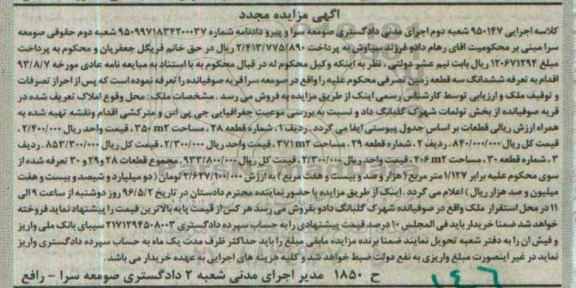 آگهی مزایده مجدد
کلاسه اجرایی ۹۵۰۱۴۷ شعبه دوم اجرای مدنی دادگستری صومعه سرا و پیرو دادنامه شماره ۹۵۰۹۹۷۱۸۳۴۲۰۰۰۳۷ شعبه دوم حقوقی صومعه
سرا مبنی بر محکومیت آقای رهام دادو فرزند سیاوش به پرداخت ۲/۴۱۳/۷۷۵/۸۹۰ ریال در حق خانم فریگل جعفریان و محکوم به پرداخت
مبلغ ۱۲۰۶۷۱۲۹۴ ریال بابت نیم عشر دولتی، نظر به اینکه وکیل محکوم له در قبال محکوم به با استناد به مبایعه نامه عادی مورخه ۹۳/۸/۷
اقدام به تعرفه ششدانگ سه قطعه زمین تصرفی محکوم علیه را واقع در صومعه سرا قریه صوفیانده را تعرفه نموده است که پس از احراز تصرفات
و توقیف ملک و ارزیابی توسط کارشناس رسمی اینک از طریق مزایده به فروش می رسد. مشخصات ملک: محل وقوع املاک تعریف شده در
قریه صوفیانده از بخش تولمات شهرک گلبانگ داد و نسبت به بررسی موقعیت جغرافیایی جی پی اس و متر کشی اقدام ونقشه تهیه شده به
همراه ارزش ریالی قطعات بر اساس جدول پیوستی ایفا می گردد. ردیف ۱، شماره قطعه ۲۸، مساحت ۳۵۰ m2، قیمت واحد ریال ۲/۴۰۰/۰۰۰،
قیمت کل ریال ۸۴۰/۰۰۰/۰۰۰، ردیف ۲، شماره قطعه ۲۹، مساحت ۳۷۱ m2، قیمت واحد ریال ۲/۳۰۰/۰۰۰، قیمت کل ریال ۸۵۳/۳۰۰/۰۰۰، ردیف
۳، شماره قطعه ۳۰، مساحت ۴۰۶ m2، قیمت واحد ریال ۲/۳۰۰/۰۰۰، قیمت کل ریال ۹۳۳/۸۰۰/۰۰۰، مجموع قطعات ۲۸ و ۲۹ و ۳۰ تعرفه شده از
سوی محکوم علیه برابر ۱/۱۲۷ متر مربع (هزار و صد و بیست و هفت مربع) به ارزش ۲/۶۲۷/۱۰۰/۰۰۰ تومان (دو میلیارد و ششصد و بیست و هفت
میلیون و صد هزار ریال) اعلام می گردد. اینک از طریق مزایده با حضور نماینده محترم دادستان در تاریخ ۹۶/۵/۲ روز دوشنبه از ساعت ۹ الی
۱۱ در محل استقرار ملک واقع در صوفیانده شهرک گلبانگ دادو بفروش می رسد هر کس از قیمت پایه بالاترین قیمت را پیشنهاد نماید فروخته
خواهد شد ضمنا خریدار باید فی المجلس ۱۰ درصد قیمت پیشنهادی را به حساب سپرده دادگستری ۲۱۷۱۲۹۴۵۰۸۰۰۳ سیبای بانک ملی واریز
و فیش ان را به دفتر شعبه تحویل نمایند ضمنا برنده مزایده مابقی مبلغ را باید حداکثر ظرف مدت یک ماه به حساب سپرده دادگستری واریز
نماید در غیر اینصورت مبلغ واریزی به نفع دولت ضبط خواهد شد و کلیه هزینه های اجرایی به عهده خریدار می باشد.
ح ۱۸۵۰ مدیر اجرای مدنی شعبه ۲ دادگستری صومعه سرا - رافع
۱۴۶